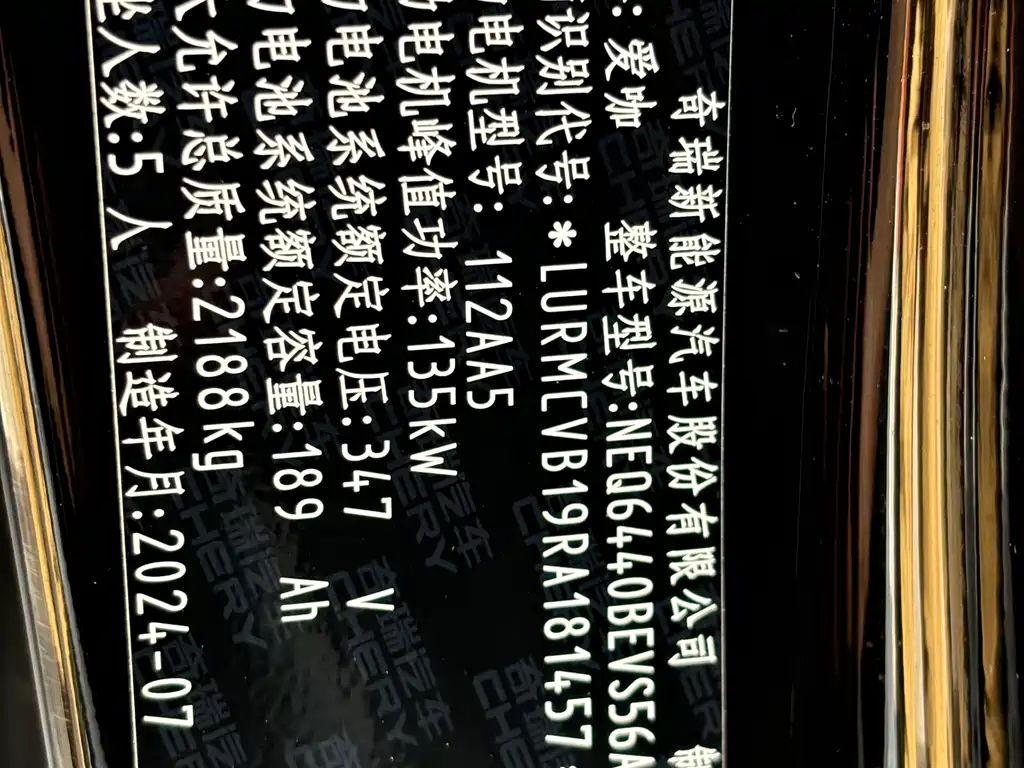 奇瑞新能源汽车股份有限公司 制
: 爱咖 整车型号:NEQ6440BEVS56A
识别代号:*LURMCVB19RA181457
电机型号: 112AA5
电机峰值功率:135kW
电池系统额定电压:347 V
电池系统额定容量:189 Ah
允许总质量:2188kg
坐人数:5 人 制造年月:2024-07